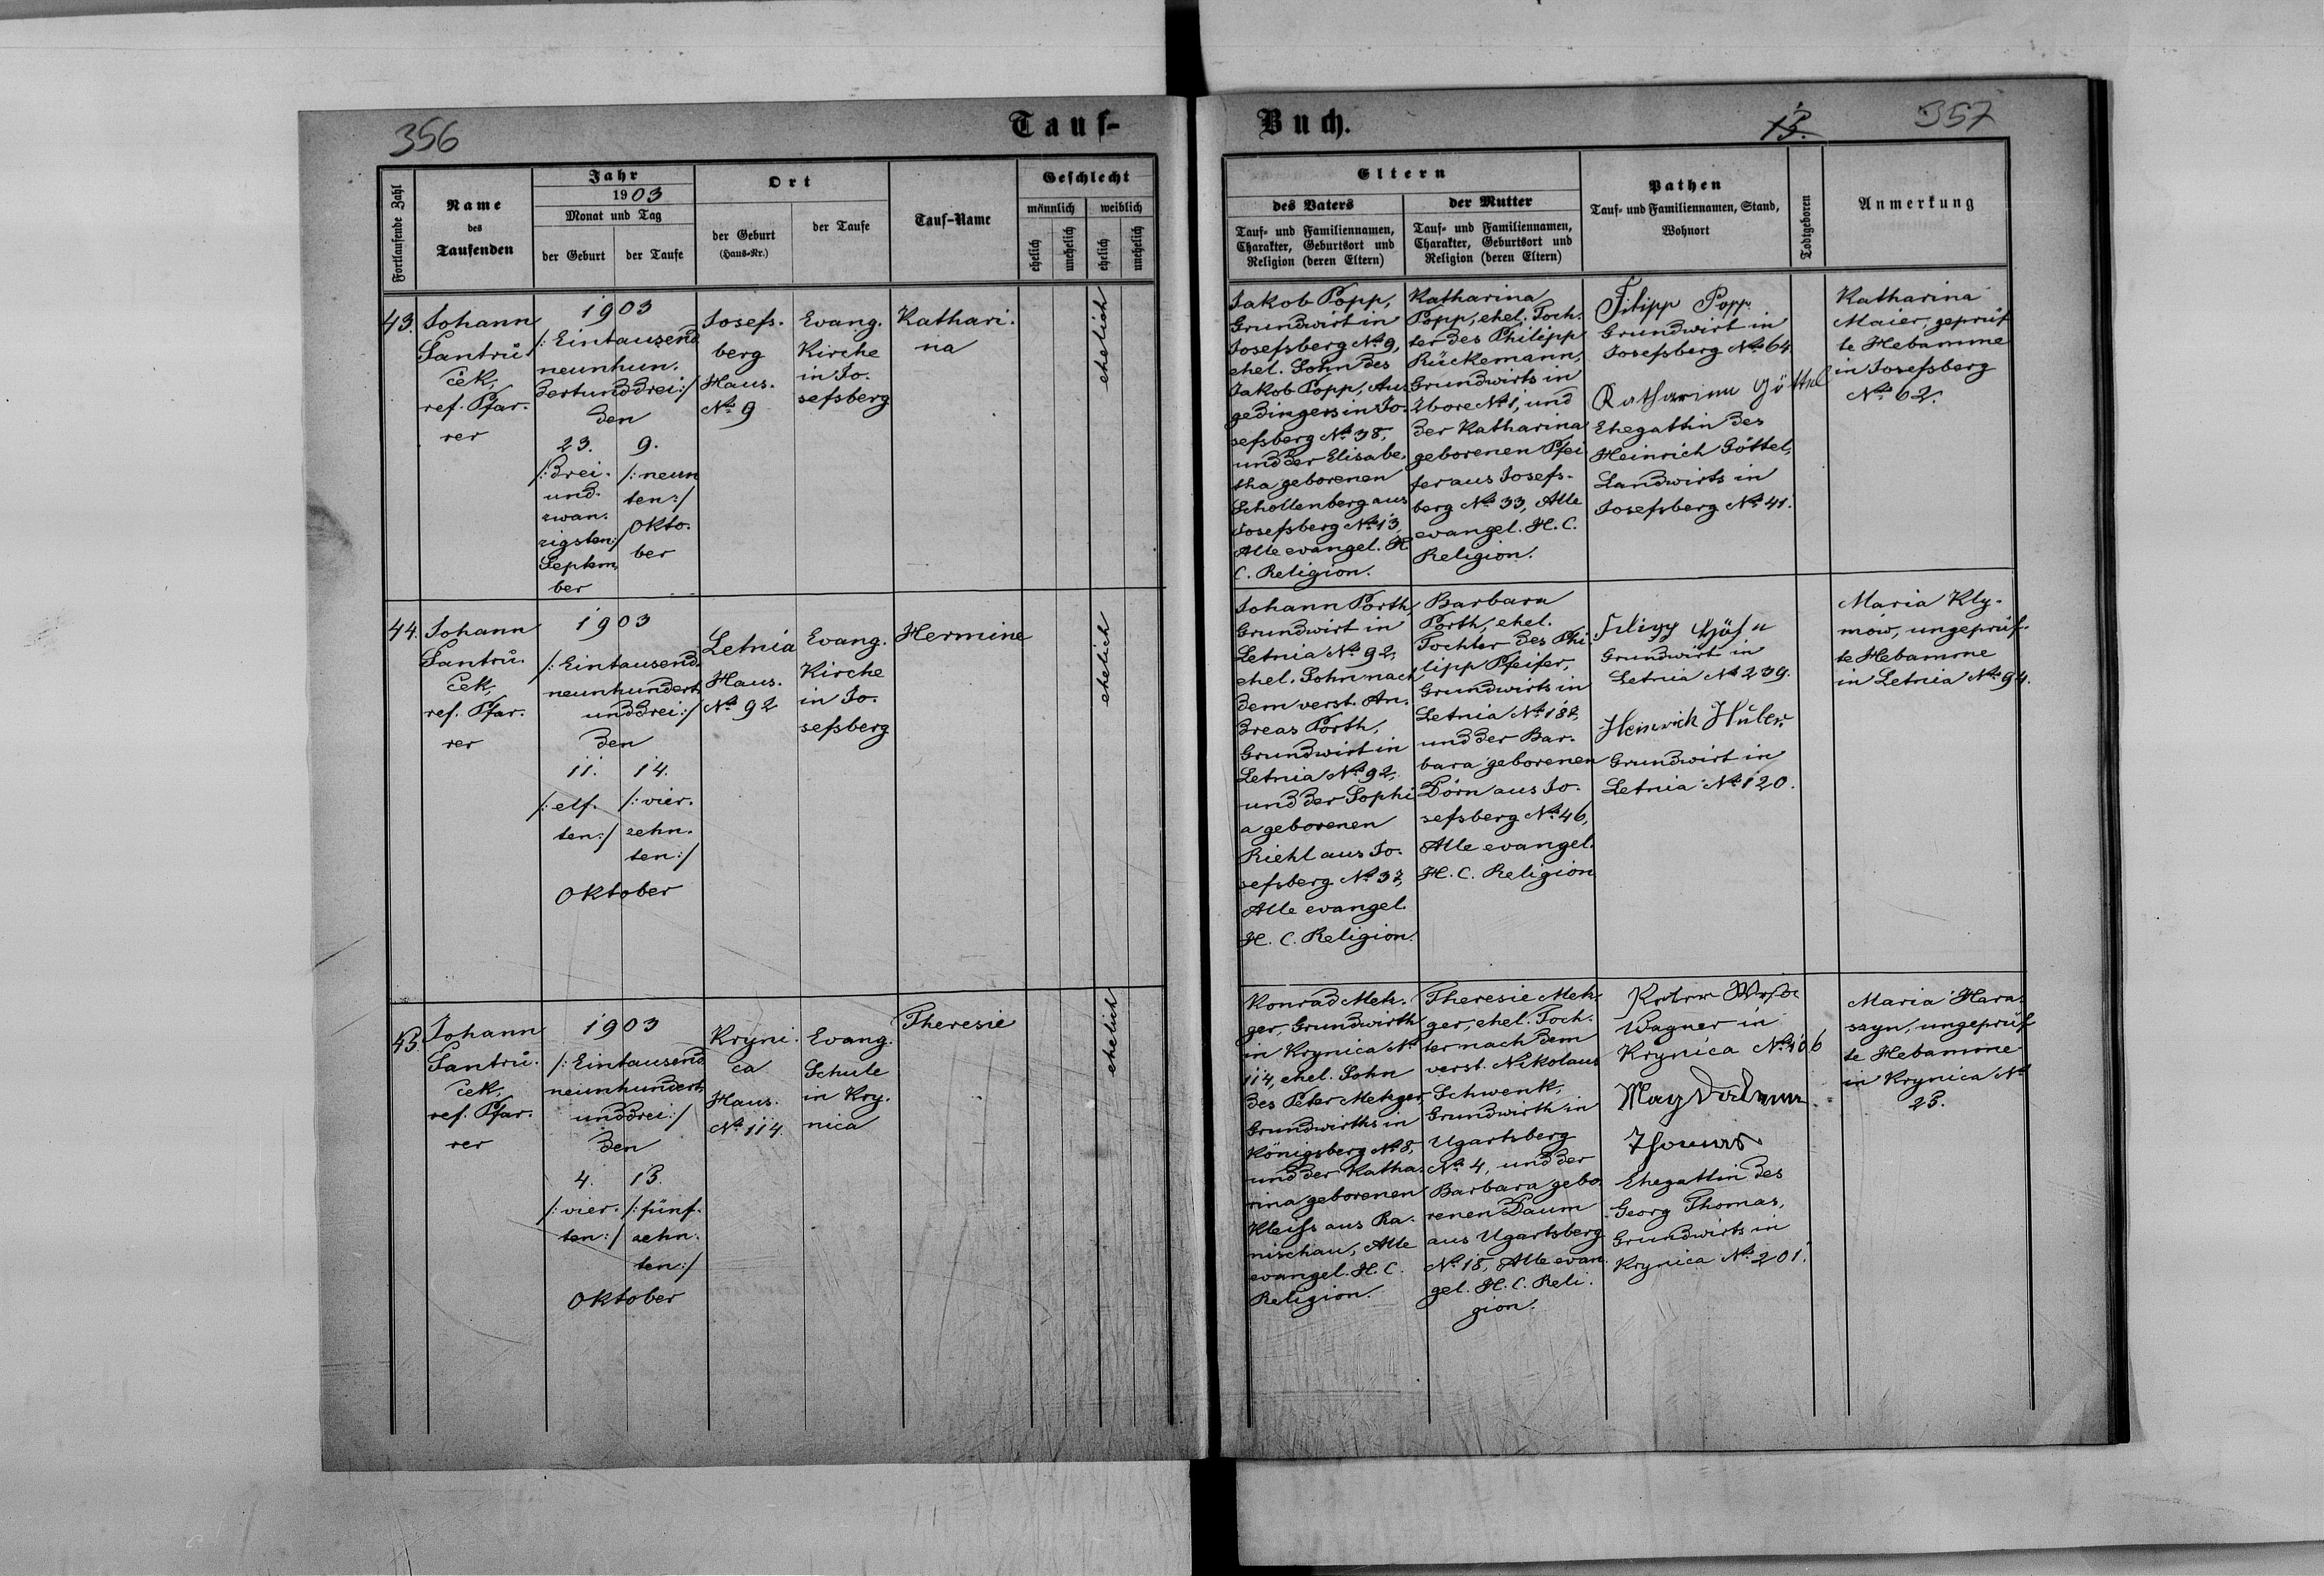 356
Tauf-
Fortlaufende Zahl
Name
des
Taufenden
Jahr
1903
Monat und Tag
der Geburt
der Taufe
Ort
der Geburt
(Haus-Nr.)
der Taufe
Tauf-Name
Geschlecht
männlich
weiblich
ehelich
unehelich
ehelich
unehelich
43.
Johann
Santrů-
ček,
ref. Pfar-
rer
1903
/: Eintausend
neunhun-
dertunddrei :/
den
23.
/: drei-
und-
zwan-
zigsten :/
Septem-
ber
9.
/: neun
ten :/
Okto-
ber
Josefs-
berg
Haus-
No 9
Evang.
Kirche
in Jo-
sefsberg
Kathari-
na
ehelich
44.
Johann
Santrů-
ček,
ref. Pfar-
rer
1903
/: Eintausend-
neunhundert
unddrei :/
den
11.
/: elf-
ten :/
14.
/: vier-
zehn-
ten :/
Oktober
Letnia
Haus-
No 92
Evang.
Kirche
in Jo-
sefsberg
Hermine
ehelich
45.
Johann
Santrů-
ček,
ref. Pfar-
rer
1903
/: Eintausend
neunhundert
unddrei :/
den
4.
/: vier-
ten :/
15.
/: fünf-
zehn-
ten :/
Oktober
Kryni-
ca
Haus-
No 114.
Evang.
Schule
in Kry-
nica
Theresie
ehelich
Buch.
357
Eltern
des Vaters
Tauf- und Familiennamen,
Charakter, Geburtsort und
Religion (deren Eltern)
der Mutter
Tauf- und Familiennamen,
Charakter, Geburtsort und
Religion (deren Eltern)
Pathen
Tauf- und Familiennamen, Stand,
Wohnort
Todtgeboren
Anmerkung
Jakob Popp,
Grundwirt in
Josefsberg No 9,
ehel. Sohn des
Jakob Popp, Aus
gedingers in Jo-
sefsberg No 38,
und der Elisabe-
tha geborenen
Schollenberg aus
Josefsberg No 13,
Alle evangel. H.
C. Religion.
Katharina
Popp, ehel. Toch-
ter des Philipp
Rückemann,
Grundwirts in
Ubore No 1, und
der Katharina
geborenen Pfei
fer aus Josefs-
berg No 33, Alle
evangel. H. C.
Religion.
Filipp Popp
Grundwirt in
Josefsberg No 64
Katharina Göttel
Ehegattin des
Heinrich Göttel,
Landwirts in
Josefsberg No 41.
Katharina
Maier, geprüf
te Hebamme
in Josefsberg
No 62.
Johann Porth,
Grundwirt in
Letnia No 92,
ehel. Sohn nach
dem verst. An-
dreas Porth,
Grundwirt in
Letnia No 92,
und der Sophi
a geborenen
Riehl aus Jo-
sefsberg No 37,
Alle evangel.
H. C. Religion.
Barbara
Porth, ehel.
Tochter des Phi-
lipp Pfeifer,
Grundwirts in
Letnia No 188,
und der Bar-
bara geborenen
Dörn aus Jo-
sefsberg No 46,
Alle evangel.
H. C. Religion
Filipp
Grundwirt in
Letnia No 239.
Heinrich Huber
Grundwirt in
Letnia No 120.
Maria Kly-
mow, ungeprüf-
te Hebamme
in Letnia No 94.
Konrad Metz-
ger, Grundwirth
in Krynica No
114, ehel. Sohn
des Peter Metzger
Grundwirths in
Königsberg No 8,
und der Katha-
rina geborenen
Kleiss aus Ra-
nischau, Alle
evangel. H. C.
Religion.
Theresie Metz-
ger, ehel. Toch-
ter nach dem
verst. Nikolaus
Schwenk,
Grundwirth in
Ugartsberg
No 4, und der
Barbara gebo-
renen Daum
aus Ugartsberg
No 18, Alle evan-
gel. H. C. Reli-
gion.
Wagner in
Krynica No
Magdalena
Thomas
Ehegattin des
Georg Thomas,
Grundwirts in
Krynica No 201.
Maria Hara-
szyn, ungeprüf
te Hebamme
in Krynica No
25.